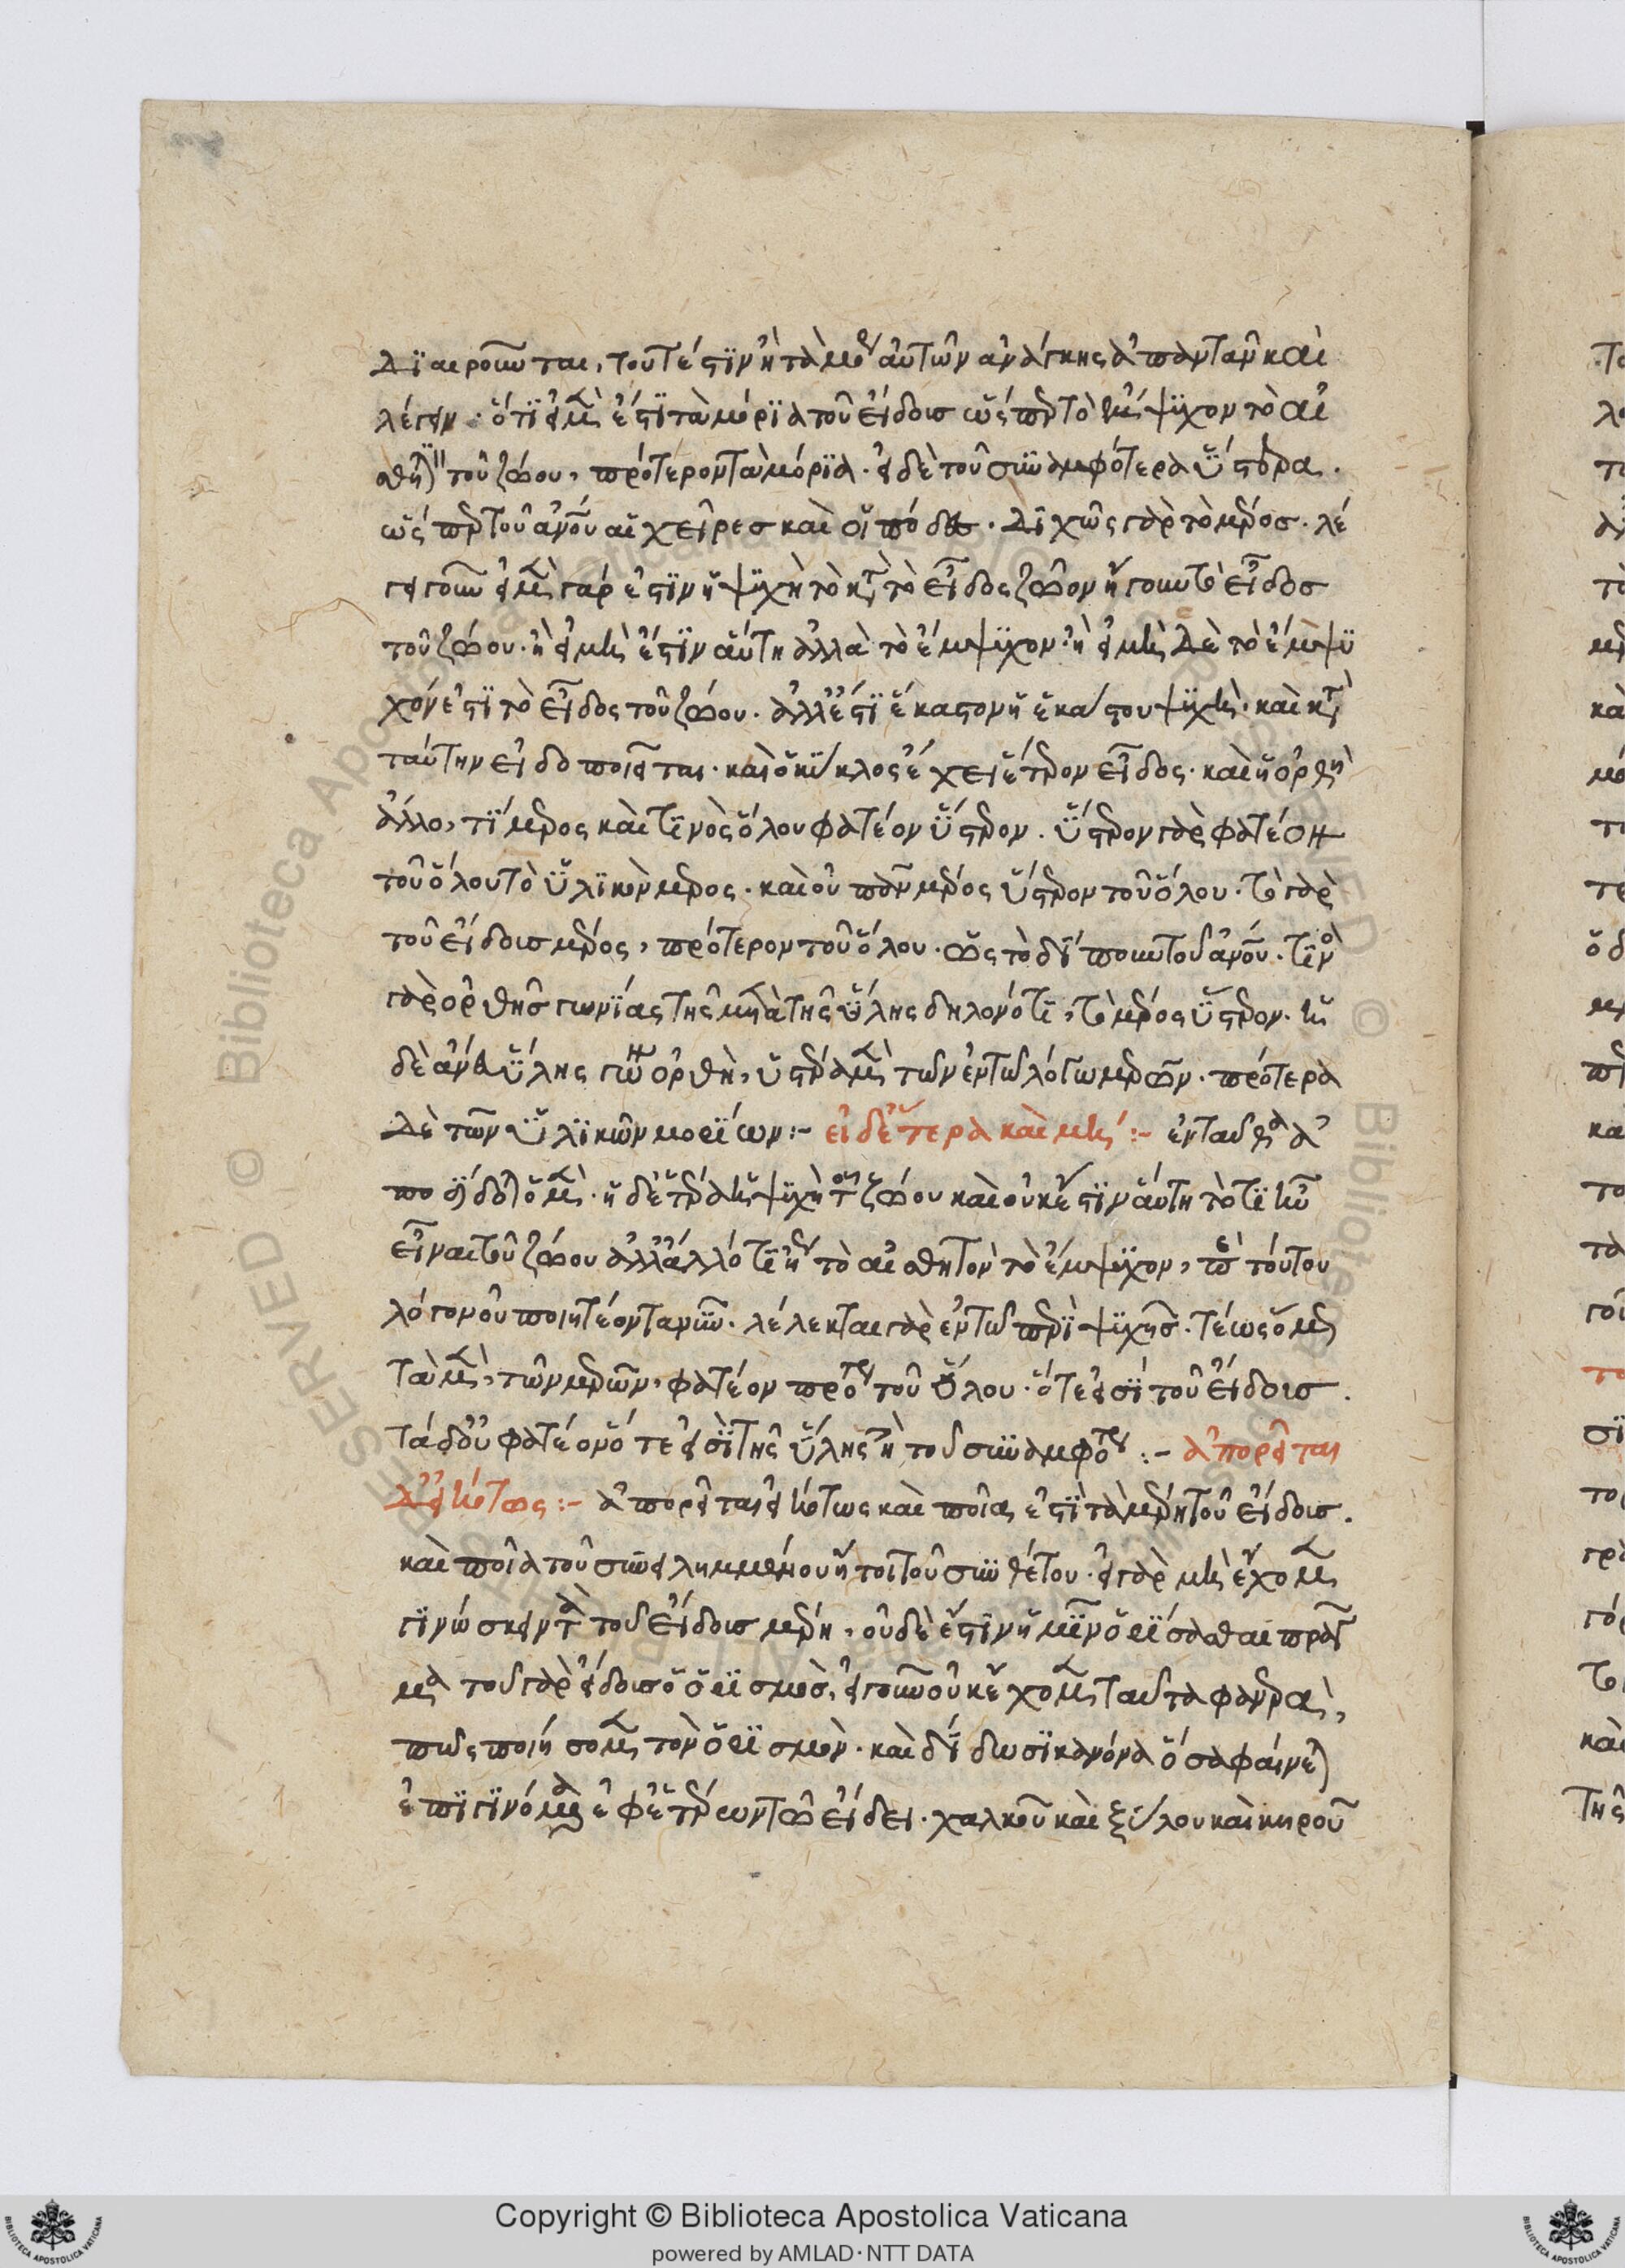 διαιροῦνται, τουτέστιν ἢ τὰ μέρη αὐτῶν ἀνάγκης ἀπαντᾶν καὶ
λέγειν· ὅτι εἰ μὲν ἐστὶ τὰ μόρια τοῦ εἴδους ὥσπερ τὸ ἔμψυχον τὸ αἰ
σθητὸν τοῦ ζώου, πρότερον τὰ μόρια. εἰ δὲ τοῦ συναμφότερα ὕστερα.
ὥσπερ τοῦ ἀνου αἱ χεῖρες καὶ οἱ πόδες. διχῶς γὰρ τὸ μέρος. λέ
γει γοῦν εἰ μὲν γάρ ἐστιν ἡ ψυχὴ τὸ κατὰ τὸ εἶδος ζῶον ἤγουν τὸ εἶδος
τοῦ ζώου. ἢ εἰ μὴ ἐστιν αὕτη ἀλλὰ τὸ ἔμψυχον. ἢ εἰ μὴ δὲ τὸ ἔμψυ
χόν ἐστι τὸ εἶδος τοῦ ζώου. ἀλλ' ἔστι ἕκαστον ἡ ἑκάστου ψυχὴ. καὶ κατὰ
ταύτην εἰδοποιεῖται. καὶ ὁ κύκλος ἔχει ἕτερον εἶδος. καὶ ἡ ὀρθὴ
ἄλλο, τί μέρος καὶ τίνὸς ὅλου φατέον ὕστερον. ὕστερον γὰρ φατέον
τοῦ ὅλου τὸ ὑλικὸν μέρος. καὶ οὐ πᾶν μέρος ὕστερον τοῦ ὅλου. τὸ γὰρ
τοῦ εἴδους μέρος, πρότερον τοῦ ὅλου. ὡς τὸ δίπουν τοῦ ἀνου. τινὸς
γὰρ ὀρθῆς γωνίας τῆς μετὰ τῆς ὕλης δηλονότι, τὸ μέρος ὕστερον. ἡ
δὲ ἄνευ ὕλης γωνη ὀρθὴ, ὑστέρα μὲν τῶν ἐν τῶ λόγω μερῶν. πρότερα
δὲ τῶν ὑλικῶν μορίων :- εἰ δ' ἕτερα καὶ μὴ :- ἐνταῦθα ἀ
ποδίδοται ὁ μὲν. ἡ δ' ἑτέρα ἡ ψυχὴ τοῦ ζώου καὶ οὐκ ἔστιν αὕτη τὸ τί ἦν
εἶναι τοῦ ζώου ἀλλ' ἄλλό τι ἤγουν τὸ αἰσθητὸν τὸ ἔμψυχον, περὶ τούτου
λόγον οὐ ποιητέον τανῦν. λέλεκται γὰρ ἐν τῶ περὶ ψυχῆς. τέως ὅμως
τὰ μὲν, τῶν μερῶν, φατέον πρότερα τοῦ ὅλου. ὅτε εἰσὶ τοῦ εἴδους.
τὰ δ' οὐ φατέον ὅτε εἰσὶ τῆς ὕλης ἢ τοῦ συναμφοτέρου :- ἀπορεῖται
δ' εἰκότως :- ἀπορεῖται εἰκότως καὶ ποῖα ἐστὶ τὰ μέρη τοῦ εἴδους.
καὶ ποῖα τοῦ συνειλημμένου ἤτοι τοῦ συνθέτου. εἰ γὰρ μὴ ἔχομεν
γινώσκειν τὰ τοῦ εἴδους μέρη, οὐδὲ ἔστιν ἡμῖν ὁρίσασθαι πρᾶγ
μα τοῦ γὰρ εἴδους ὁ ὁρισμὸς, εἰ γοῦν οὐκ ἔχομεν ταῦτα φανερὰ,
πῶς ποιήσομεν τὸν ὁρισμὸν. καὶ δίδωσι κανόνα ὅσα φαίνεται
ἐπιγινόμενα ἐφ' ἑτέρων τῶ εἴδει. χαλκοῦ καὶ ξύλου καὶ κηροῦ
Copyright © Biblioteca Apostolica Vaticana
powered by AMLAD·NTT DATA